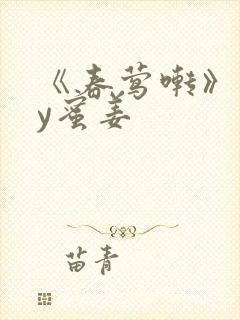 《春莺啭》
y蜜姜
苗青